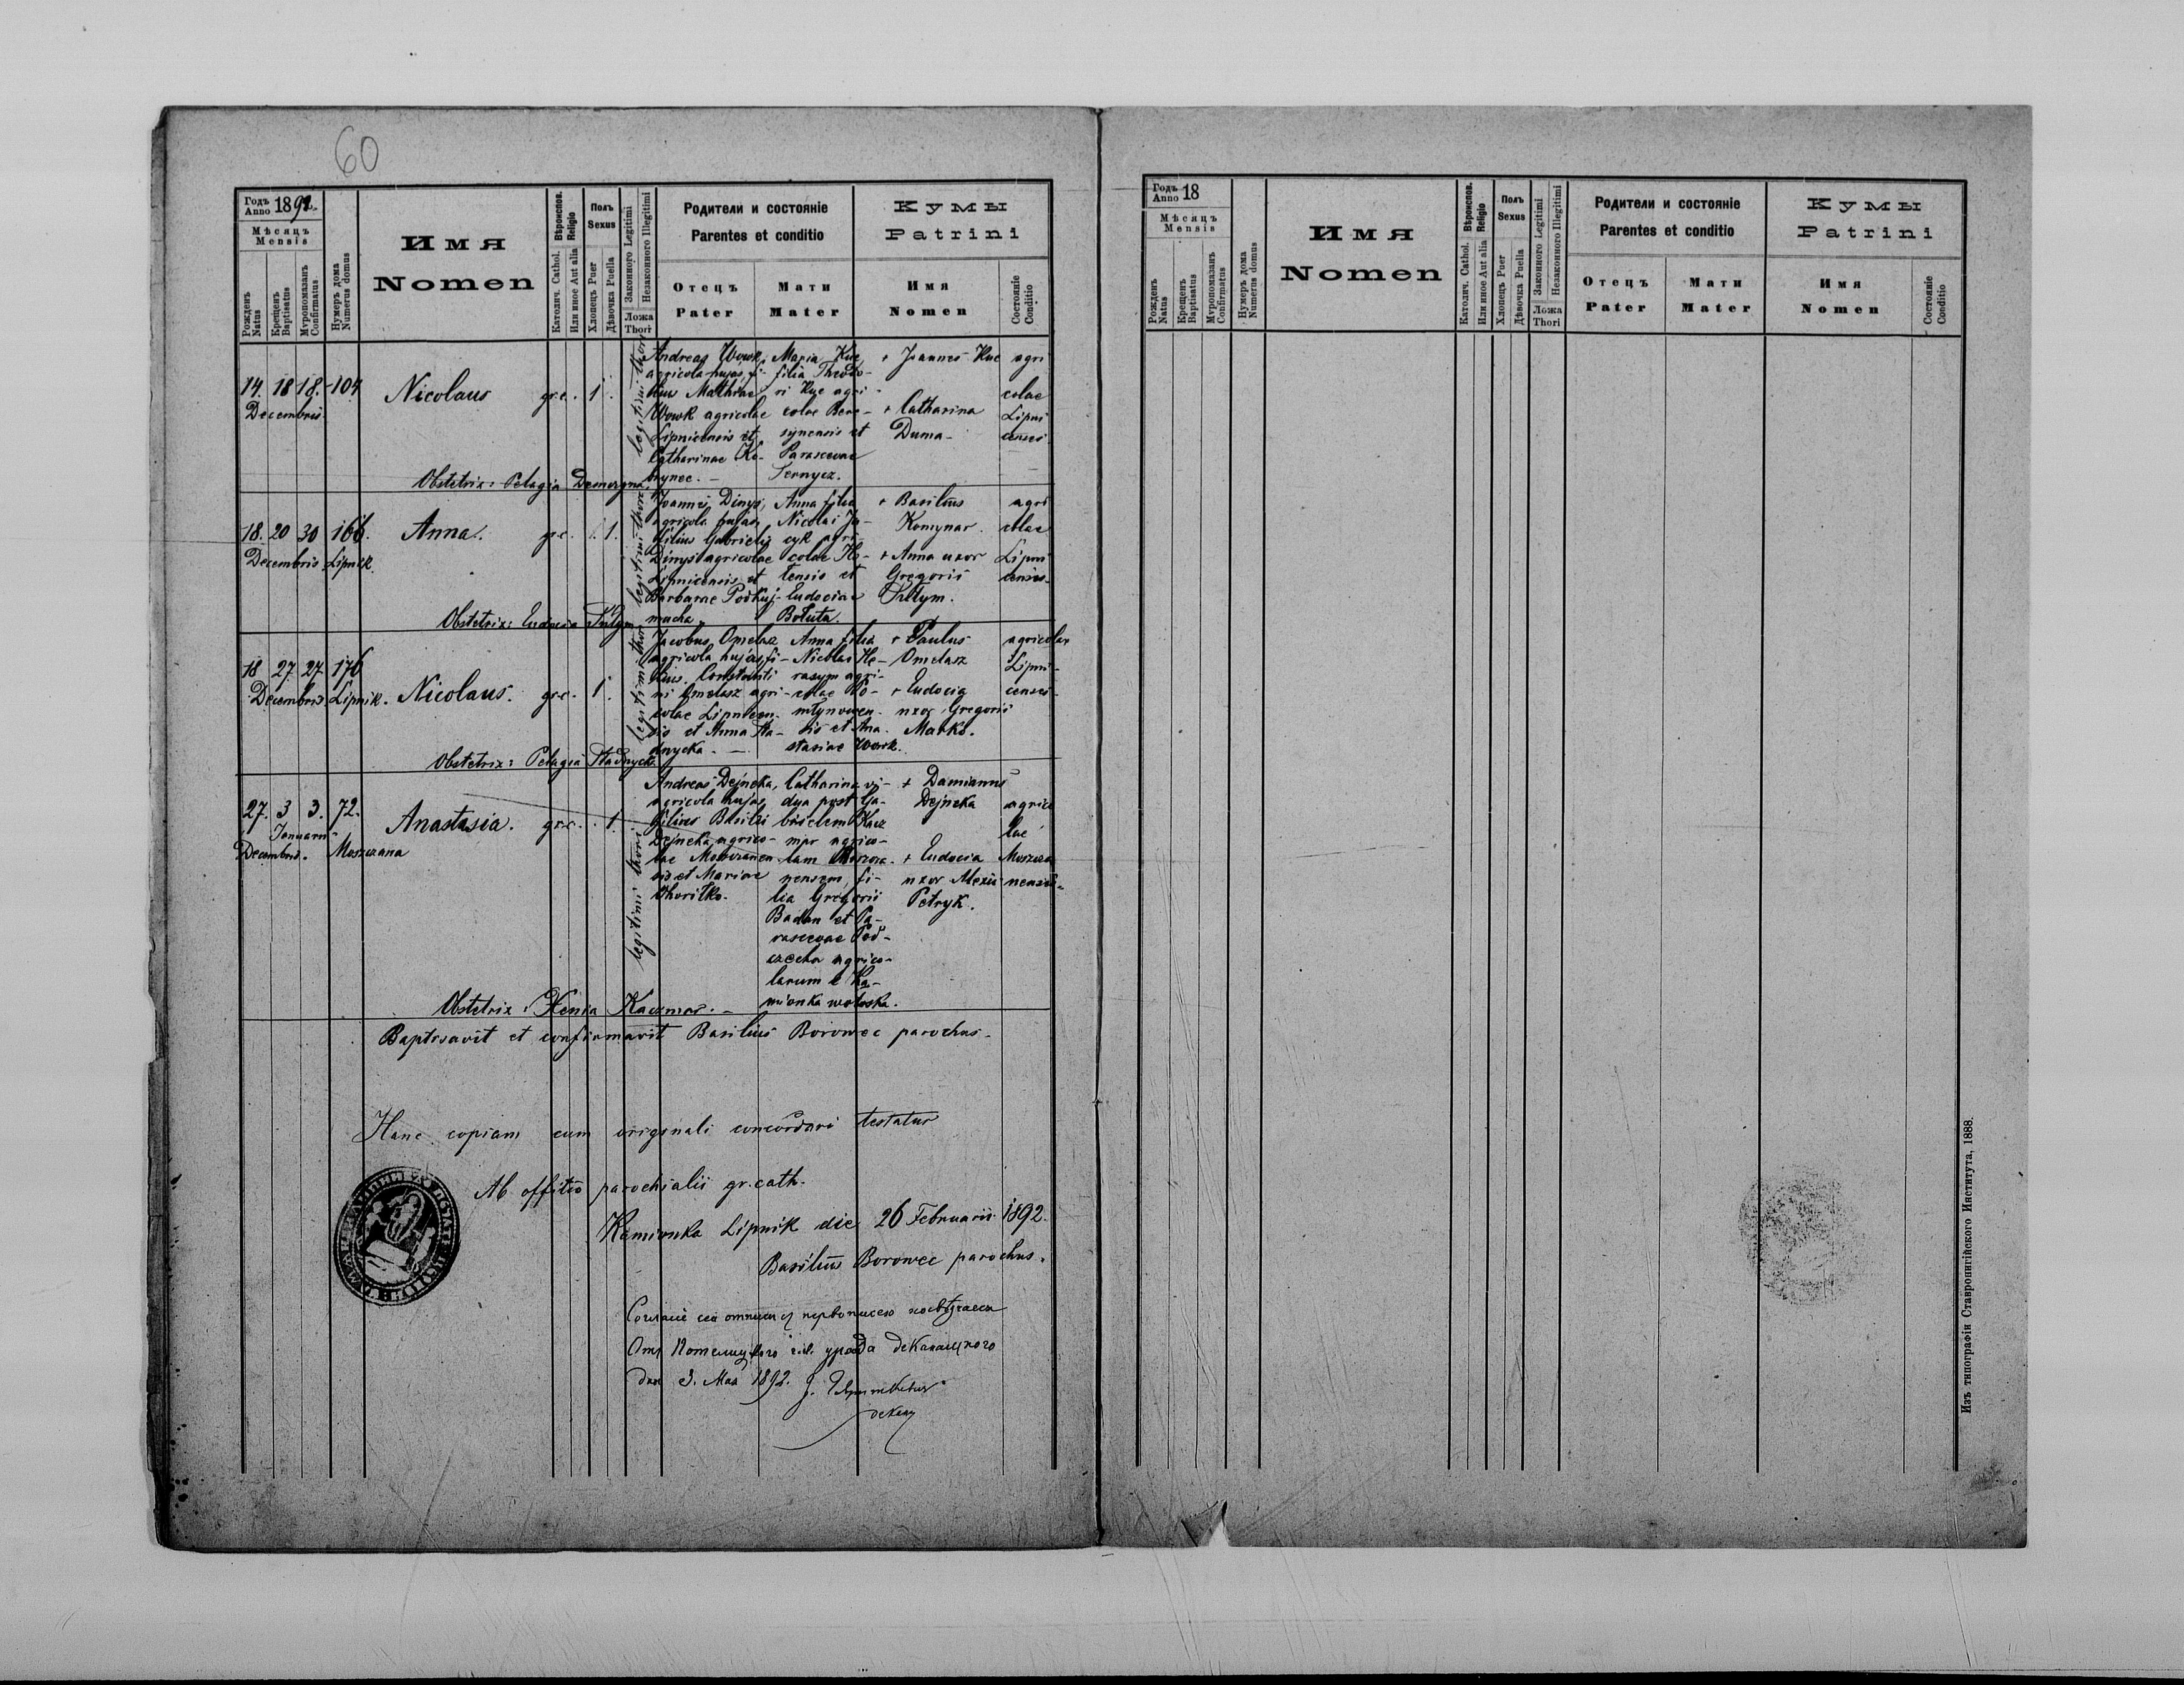 60
Годъ Anno 1892.
Мѣсяцъ
Mensis
Рожденъ Natus
Крещенъ Baptisatus
Мνропомазанъ Confirmatus
Нумеръ дома Numerus domus
Имя
Nomen
Вѣроиспов. Religio
Католич. Cathol.
Или иное Aut alia
Полъ
Sexus
Хлопецъ Puer
Дѣвочка Puella
Законного Legitimi
Незаконного Illegitimi
Ложа
Thori
Родители и состоянiе
Parentes et conditio
Отецъ
Pater
Мати
Mater
Кумы
Patrini
Имя
Nomen
Состоянiе
Conditio
14. 18 18. 104
Decembris
Nicolaus gr.c. 1.
legitimi thori
Andreas Wowk,
agricola hujas, fi-
lius Mathiae
Wowk agricolae
Lipnicensis et
Catharinae Ke-
hynec.
Maria Kuc
filia Theodo-
ri Kuc agri-
colae
synensis et
Parascevae
+ Joannes Kuc
+ Catharina
Duma
agri
colae
Lipni
censes
Obstetrix: Pelagia
18. 20 30 166.
Decembris Lipnik.
Anna. gr.c. 1.
legitimi thori
Joannes Dinys,
agricola hujas,
filius Gabrielis
Dinys agricolae
Lipnicensis et
Barbarae
Anna filia
Nicolai
agri-
colae
tensis et
Eudociae
Boluta.
+ Basilius
Komynar.
+ Anna uxor
Gregorii
agri
colae
Lipni
censes
Obstetrix: Eudocia
18 27. 27. 176
Decembris Lipnik.
Nicolaus. gr.c. 1.
legitimi thori
Jacobus Omelasz
agricola hujas, fi-
lius Constanti
ni Omelasz agri-
colae Lipnicen-
sis et Anna
Anna filia
Nicolai He-
rasym agri-
colae Po-
młynowen-
sis et Ana
stasiae Wowk.
+ Paulus
Omelasz
+ Eudocia
uxor Gregorii
Matko.
agricolae
Lipni-
censes
Obstetrix: Pelagia
27. 3 3. 72.
Januarii
Decembris. Moszczana
Anastasia. gr.c. 1.
legitimi thori
Andreas Dejneka,
agricola hujas,
filius Basilii
Dejneka, agrico-
lae Moszczanen
sis et Mariae
Catharina vi-
dua post Ga-
brielem Kacz
mar agrico-
lam Moszcza-
nensem, fi-
lia Gregorii
Badan et Pa-
rascevae Pod-
agrico-
larum e Ka-
mionka wołoska.
+ Damianus
Dejneka
+ Eudocia
uxor Alexii
Petryk.
agrico
lae
Moszcza
nenses
Obstetrix: Xenia Kaczmar.
Baptisavit et confirmavit Basilius Borowec parochus
Hanc copiam cum originali concordari testatur
Ab offitio parochialii gr. cath.
Kamionka Lipnik die 26 Februarii 1892.
Basilius Borowec parochus.
дня 3. Мая 1892.
Годъ Anno 18
Мѣсяцъ
Mensis
Рожденъ Natus
Крещенъ Baptisatus
Мνропомазанъ Confirmatus
Нумеръ дома Numerus domus
Имя
Nomen
Вѣроиспов. Religio
Католич. Cathol.
Или иное Aut alia
Полъ
Sexus
Хлопецъ Puer
Дѣвочка Puella
Законного Legitimi
Незаконного Illegitimi
Ложа
Thori
Родители и состоянiе
Parentes et conditio
Отецъ
Pater
Мати
Mater
Кумы
Patrini
Имя
Nomen
Состоянiе
Conditio
Изъ типографiи Ставропигiйского Института, 1888.